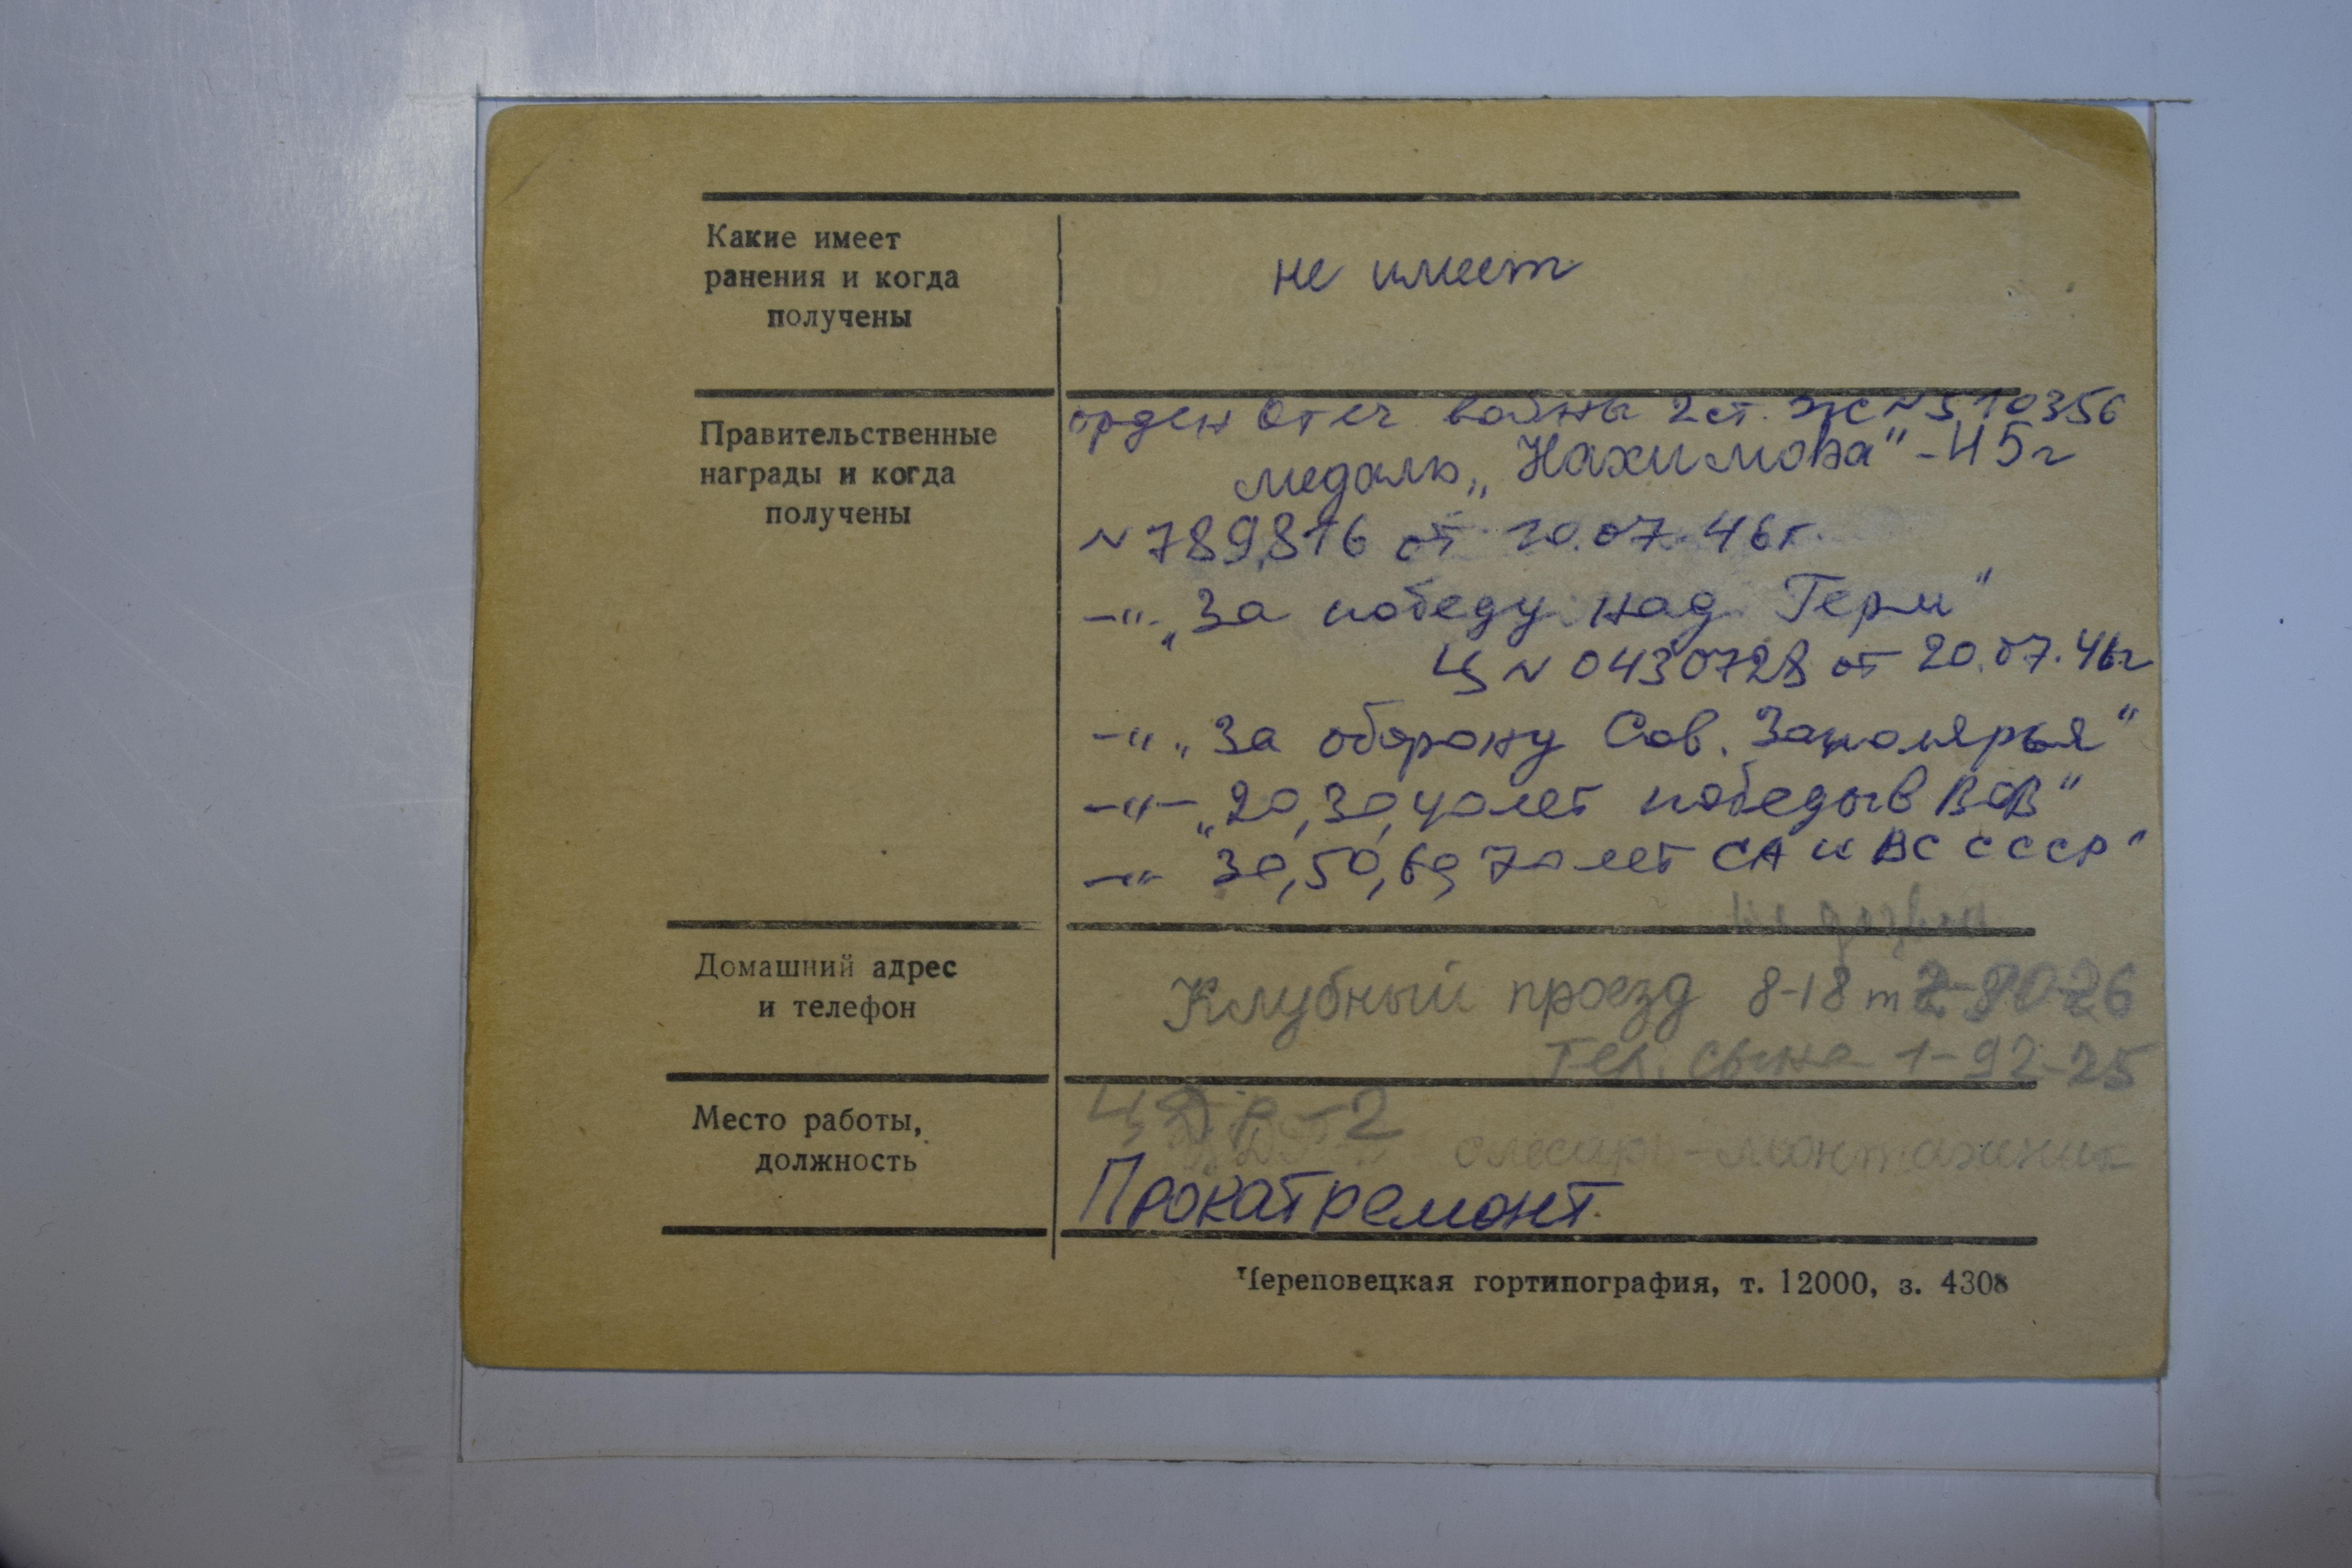 Какие имеет
ранения и когда
получены
не имеет
Правительственные
награды и когда
получены
орден Отеч войны 2 ст. ЖС № 510356
медаль „Нахимова" - 45 г
№ 789,816 от 20.07.46 г.
-"- „За победу над Герм"
Ц № 0430728 от 20.07.46 г
-" „За оборону Сов. Заполярья"
-"- „20, 30, 40 лет победы в ВОВ"
-"- 30, 50, 60, 70 лет СА и ВС СССР"
Домашний адрес
и телефон
Клубный проезд 8-18 т 2-80-26
Тел. сына 1-92-25
Место работы,
должность
-2
слесарь-монтажник
Прокатремонт
Череповецкая гортипография, т. 12000, з. 4308